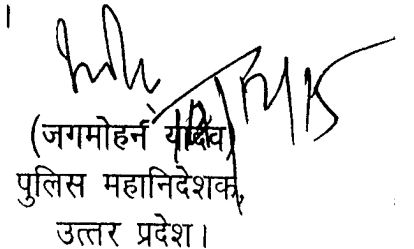 (जगमोहन यादव)
पुलिस महानिदेशक,
उत्तर प्रदेश।